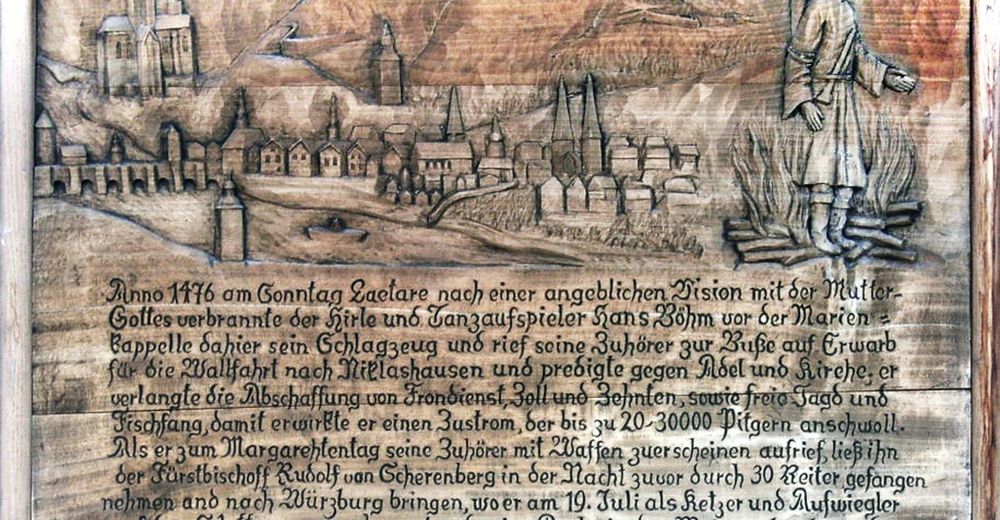 Anno 1476 am Sonntag Laetare nach einer angeblichen Vision mit der Mutter-
Gottes verbrannte der Hirte und Tanzaufspieler Hans Böhm vor der Marien=
kappelle dahier sein Schlagzeug und rief seine Zuhörer zur Buße auf Er warb
für die Wallfahrt nach Niklashausen und predigte gegen Adel und Kirche, er
verlangte die Abschaffung von Frondienst, Zoll und Zehnten, sowie freie Jagd und
Fischfang, damit erwirkte er einen Zustrom, der bis zu 20-30000 Pilgern anschwoll.
Als er zum Margarehtentag seine Zuhörer mit Waffen zuerscheinen aufrief, ließ ihn
der Fürstbischoff Rudolf von Scherenberg in der Nacht zuvor durch 30 Reiter gefangen
nehmen und nach Würzburg bringen, wo er am 19. Juli als Ketzer und Aufwiegler